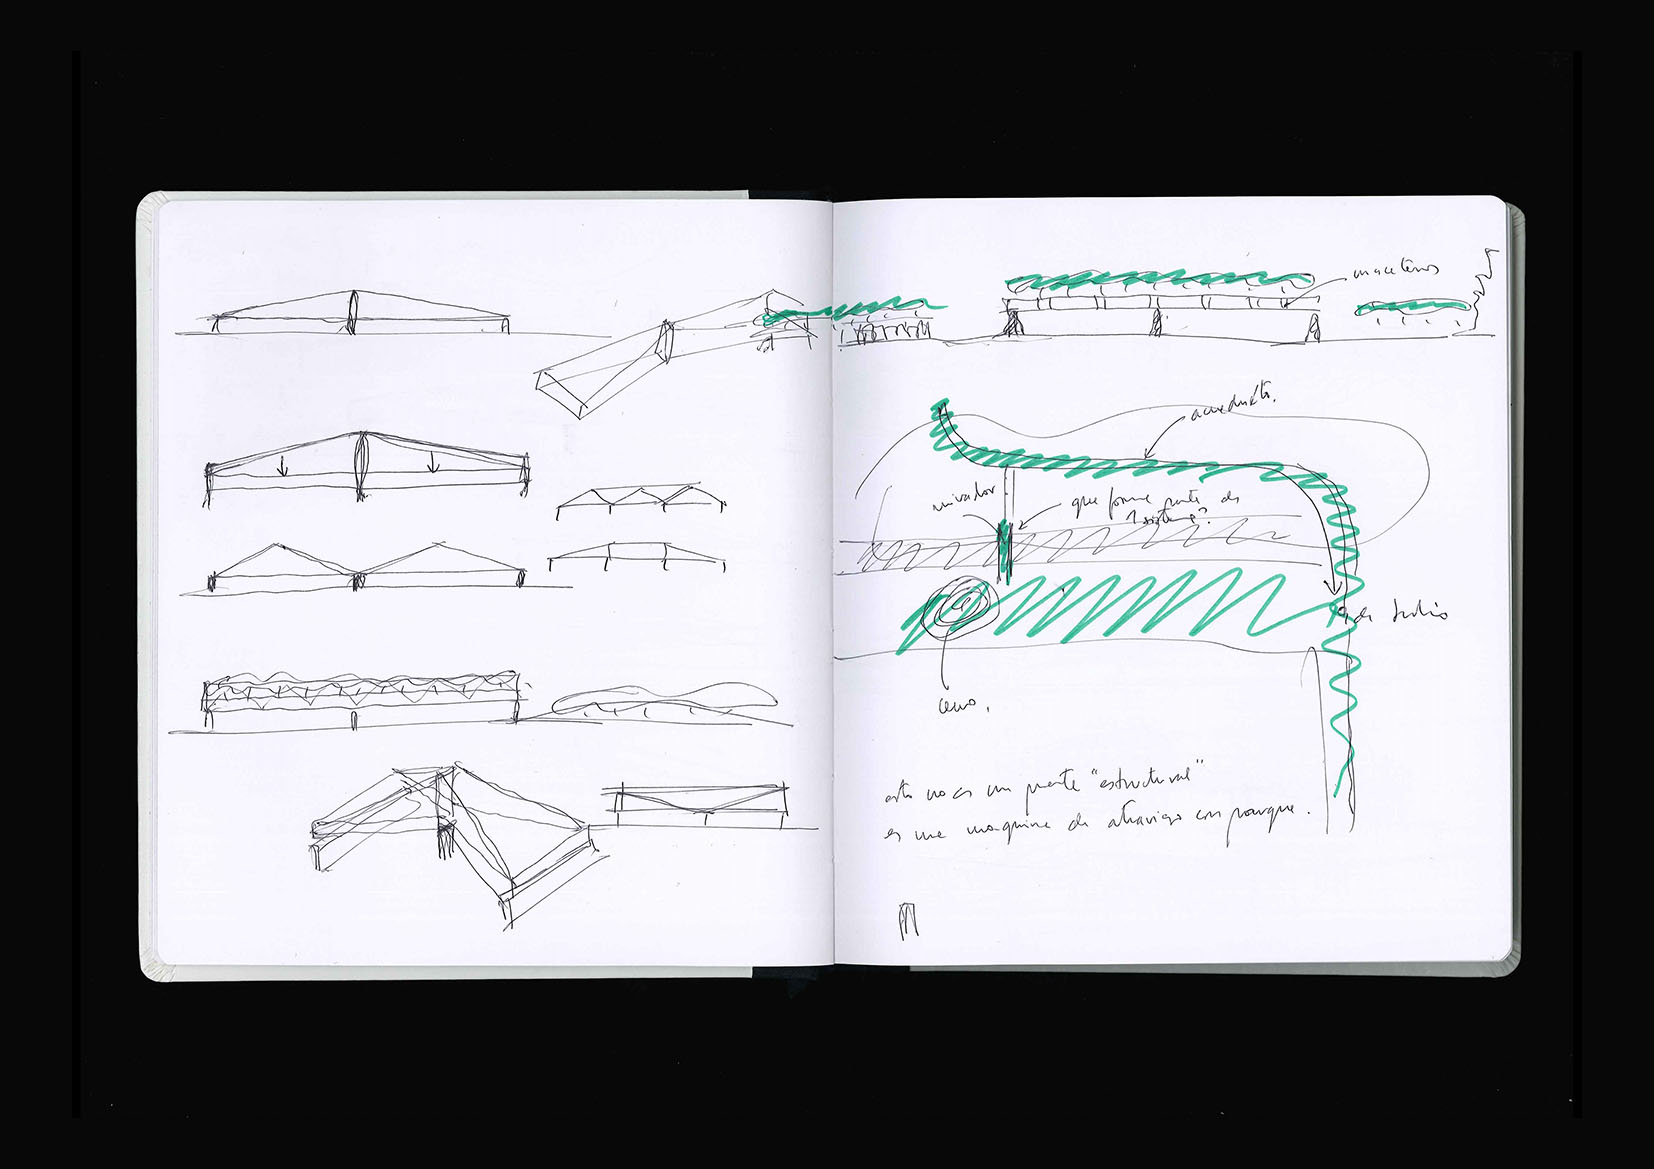 maceteros
acueducto.
mirador
que forme parte de
1 sistema?
9 de Julio
cerro.
esto no es un puente "estructural"
es una maquina de atravieso con parque.